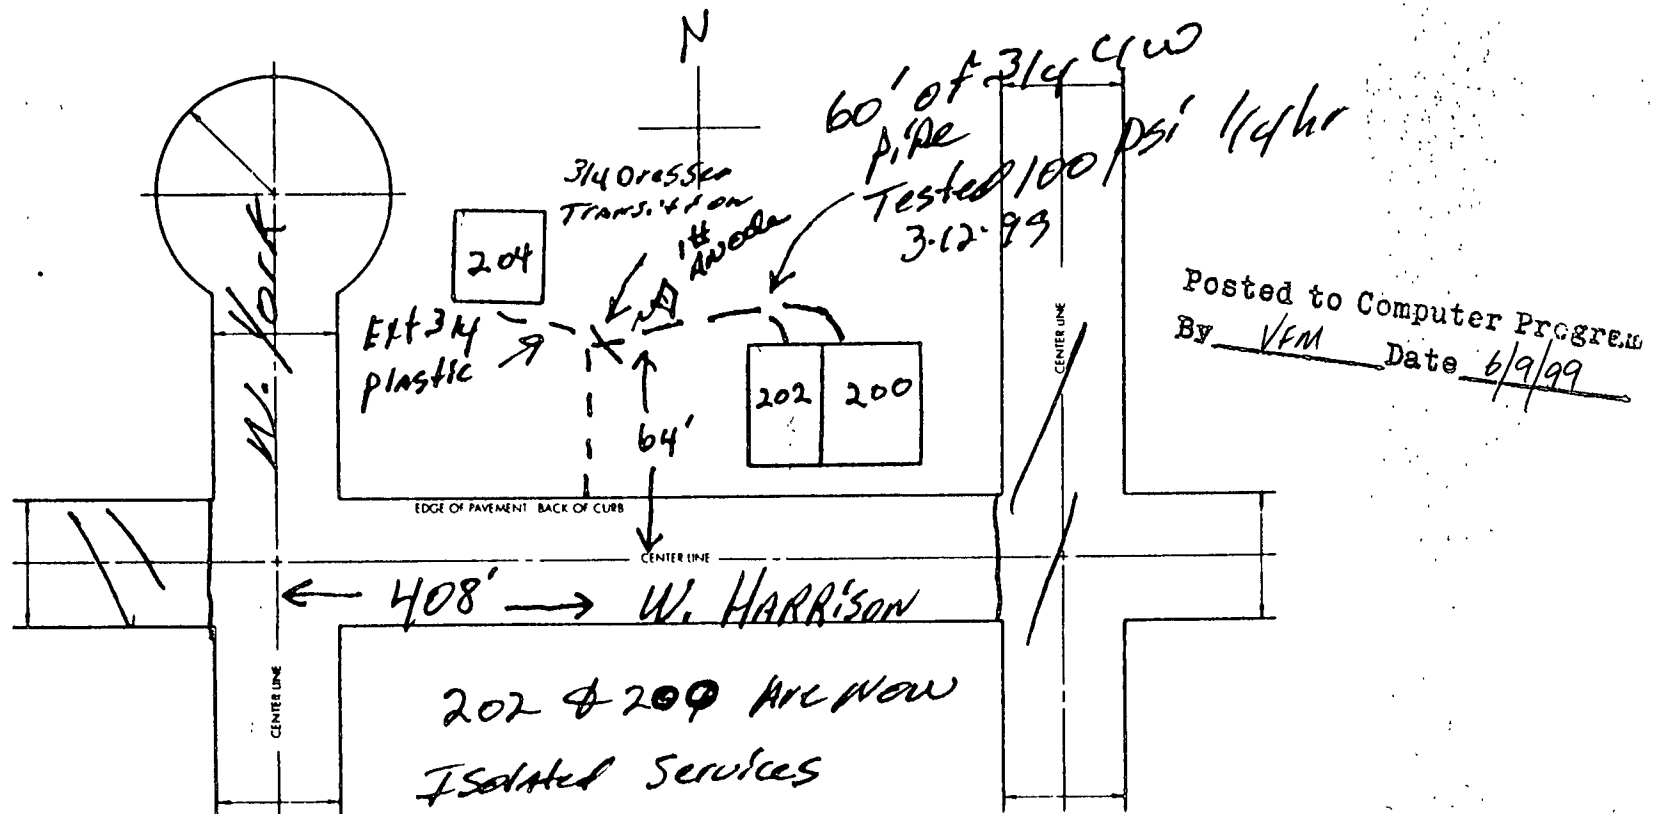 N
60' of 3/4 C/W
pipe
Tested 100 psi 1/4 hr
3-12-99
3/4 Dresser
Transition
1#
Anode
204
Ext 3/4
plastic
W. York
64'
202 200
CENTER LINE
Posted to Computer Program
By VFM Date 6/9/99
EDGE OF PAVEMENT BACK OF CURB
CENTER LINE
408' W. HARRISON
CENTER LINE
202 & 200 Are Now
Isolated Services